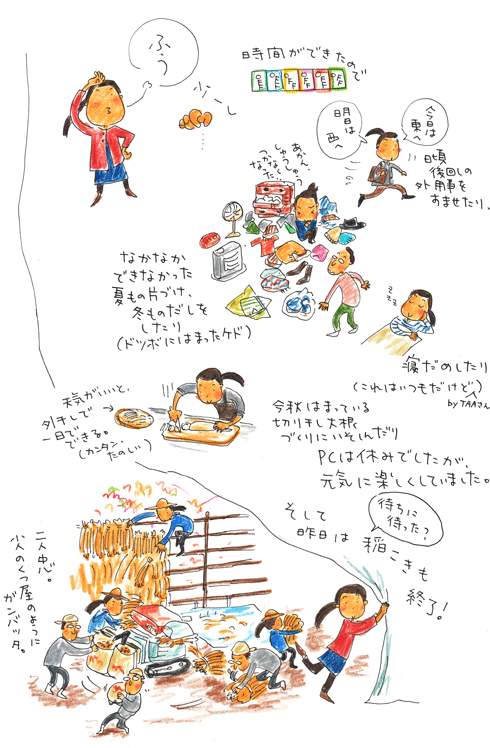 ふう
ふぅーし
時間ができたので
OFF OFF OFF OFF OFF OFF
今日は
東へ
明日は
西へ
日頃
後回しの
外用事を
すませたり、
あかん、
しゅうしゅう
つかなくなった…
なかなか
できなかった
夏もの片づけ、
冬ものだしを
したり
(ドツボにはまったケド)
zzzz
寝だめしたり
(これはいつもだけど)
by TAAさん
天気がいいと、
外干しで
一日で
できる。
(カンタン、
たのしい)
今秋はまっている
切り干し大根
づくりにいそしんだり
PCは休みでしたが、
元気に楽しくしていました。
そして
昨日は
待ちに
待った?
稲こきも
終了!
二人中心。
小人のくつ屋のように
ガンバッタ。